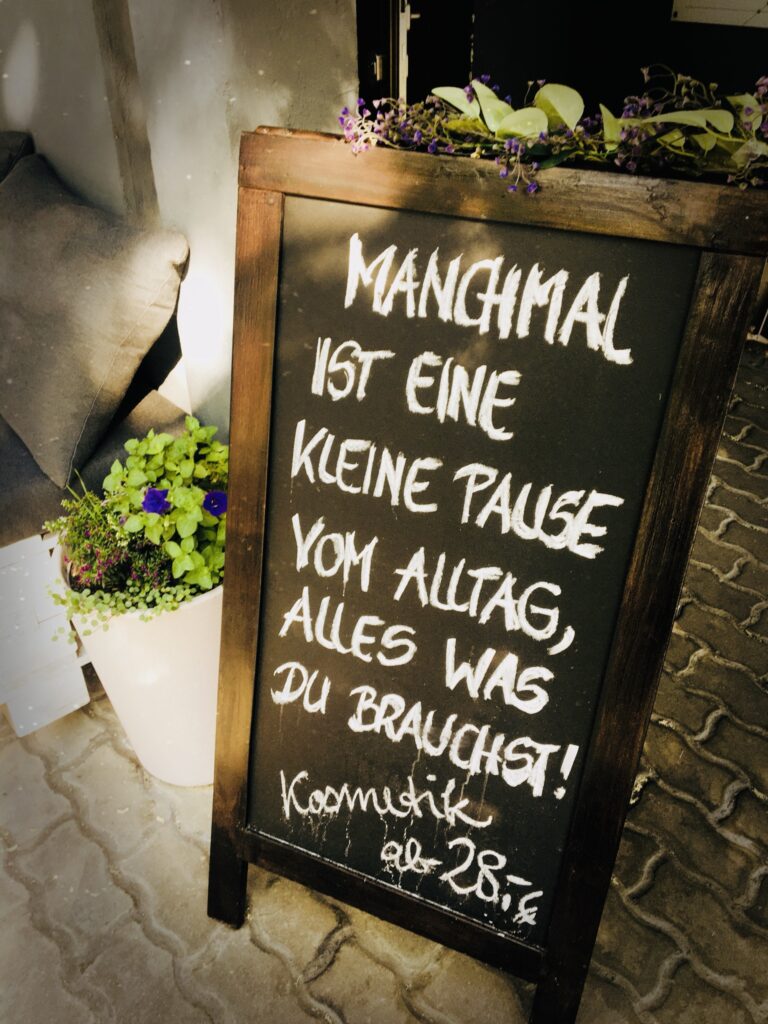 MANCHMAL
IST EINE
KLEINE PAUSE
VOM ALLTAG,
ALLES WAS
DU BRAUCHST!
Kosmetik
ab 28.-€